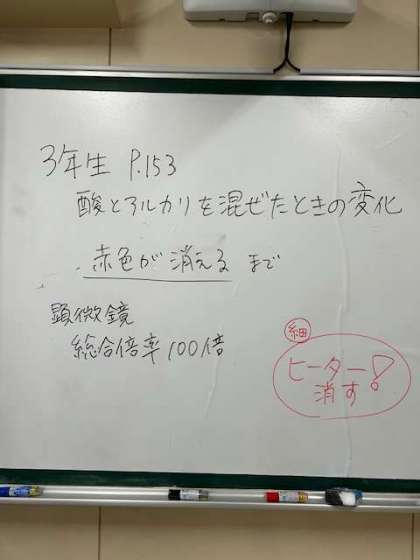 3年生 P.153
酸とアルカリを混ぜたときの変化
赤色が消えるまで
顕微鏡
総合倍率100倍
細
ヒーター!
消す